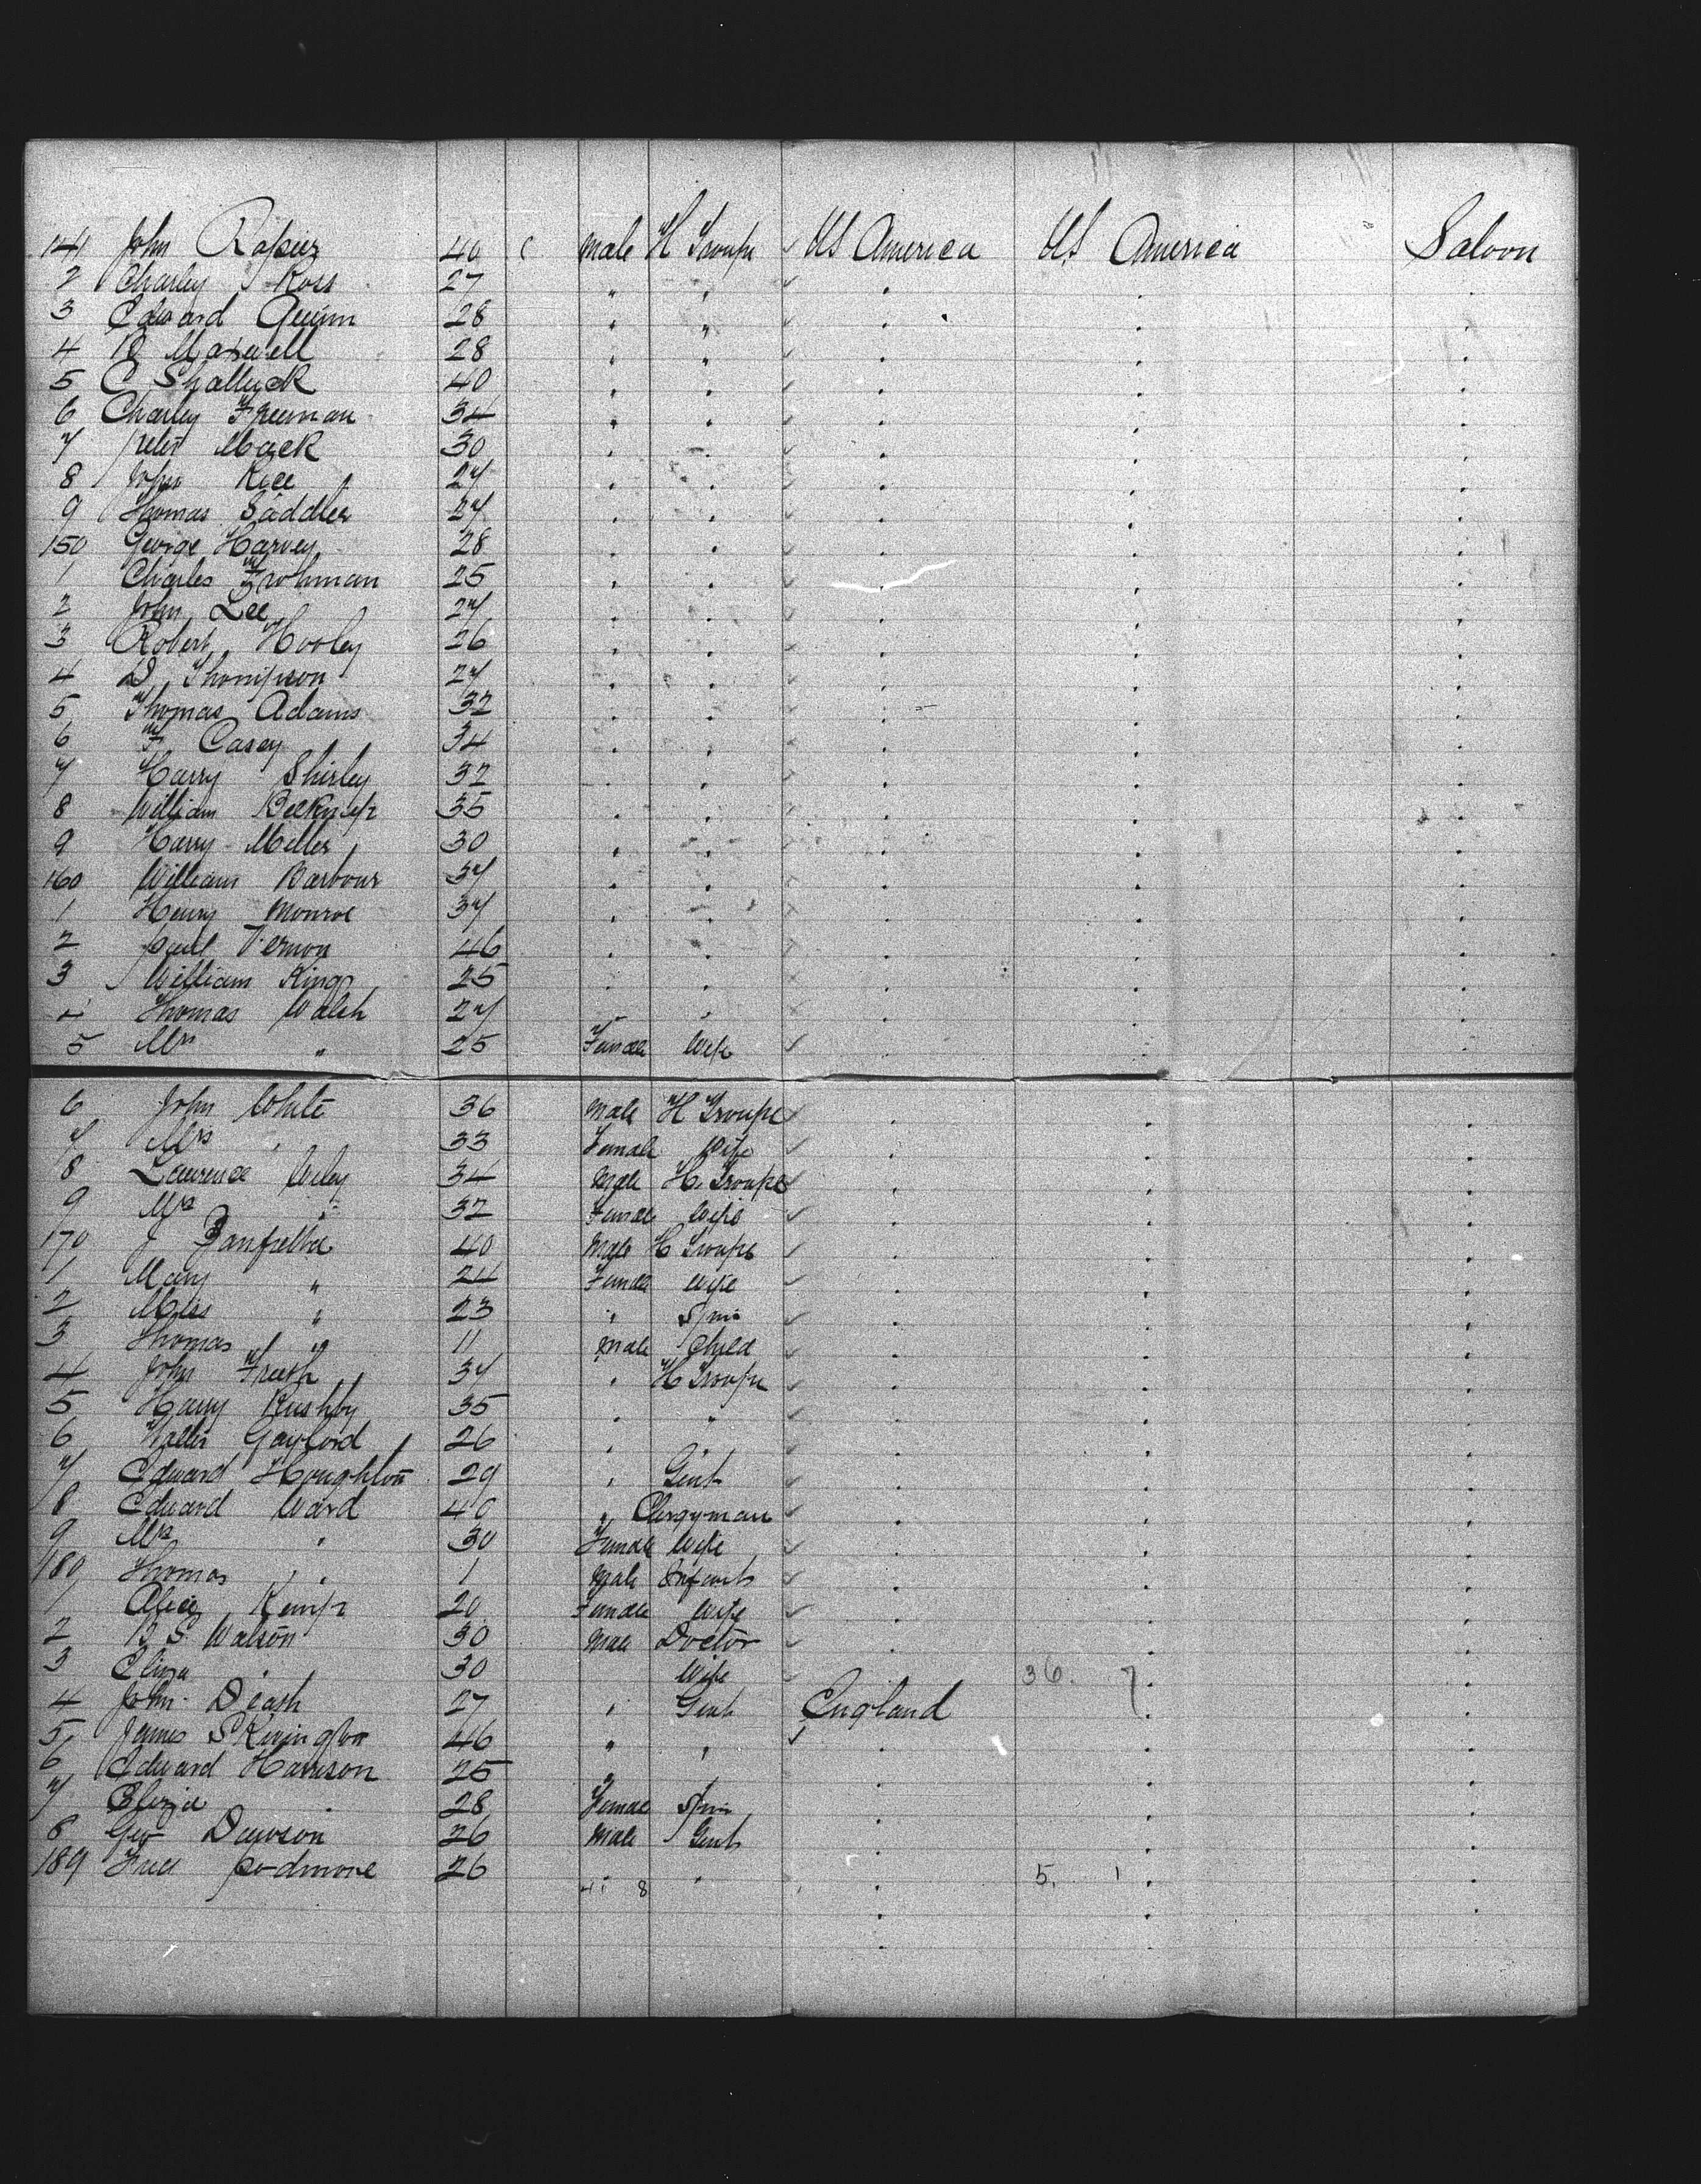 141 John Rapier 40 Male H Troupe US America US America Saloon
2 Charley Ross 27 " " . . .
3 Edward Quinn 28 " " . . .
4 R Maxwell 28 " " . . .
5 C Shattuck 40 " " . . .
6 Charley Freeman 34 " " . . .
7 Peter Mack 30 " " . . .
8 John Rice 27 " " . . .
9 Thomas Saddler 27 " " . . .
150 George Harvey 28 " " . . .
1 Charles Frohman 25 " " . . .
2 John Lee 27 " " . . .
3 Robert Hooley 26 " " . . .
4 D Thompson 27 " " . . .
5 Thomas Adams 32 " " . . .
6 F Casey 34 " " . . .
7 Harry Shirley 32 " " . . .
8 William Belknap 35 " " . . .
9 Harry Miller 30 " " . . .
160 William Barbour 37 " " . . .
1 Henry Monroe 37 " " . . .
2 Paul Vernon 46 " " . . .
3 William King 25 " " . . .
4 Thomas Walsh 27 " " . . .
5 Mrs " 25 Female Wife . . .
6 John White 36 Male H Troupe . . .
7 Mrs " 33 Female Wife . . .
8 Lawrence 34 Male H. Troupe . . .
9 Mrs " 32 Female Wife . . .
170 J 40 Male H Troupe . . .
1 Mary " 24 Female Wife . . .
2 Miss " 23 " Spin . . .
3 Thomas " 11 Male Child . . .
4 John Freeth 37 " H Troupe . . .
5 Harry Rushby 35 " " . . .
6 Walter Gaylord 26 " " . . .
7 Edward Houghton 29 " Gent . . .
8 Edward Ward 40 " Clergyman . . .
9 Mrs " 30 Female Wife . . .
180 Thomas " 1 Male Infant . . .
1 Alice Kemp 20 Female Wife . . .
2 B S Watson 30 Male Doctor . . .
3 Eliza " 30 Wife 36. 7 .
4 John Death 27 " Gent England . .
5 James Skivington 46 " " . . .
6 Edward Harrison 25 " " . . .
7 Elizia " 28 Female Spin . . .
8 Geo Dawson 26 Male Gent . . .
189 Fred Podmore 26 " " . 5. 1 .
41 8